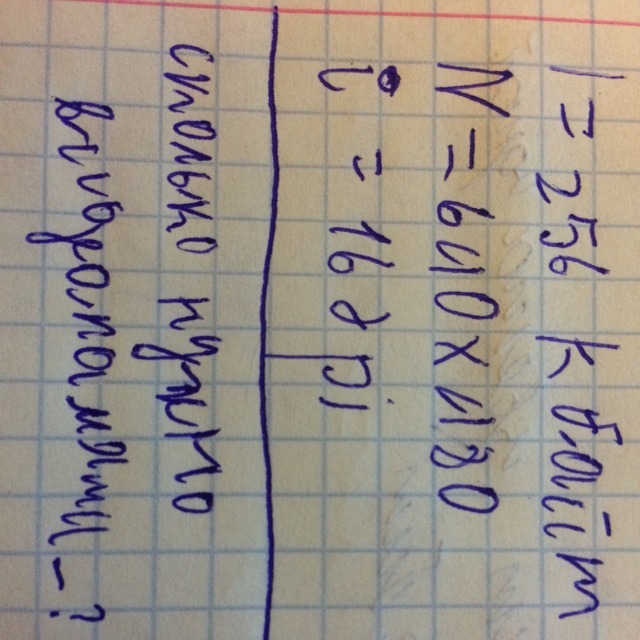 I = 256 Кбайт
N = 640 x 480
i = 16 dpi
сколько нужно
видеопамяти - ?